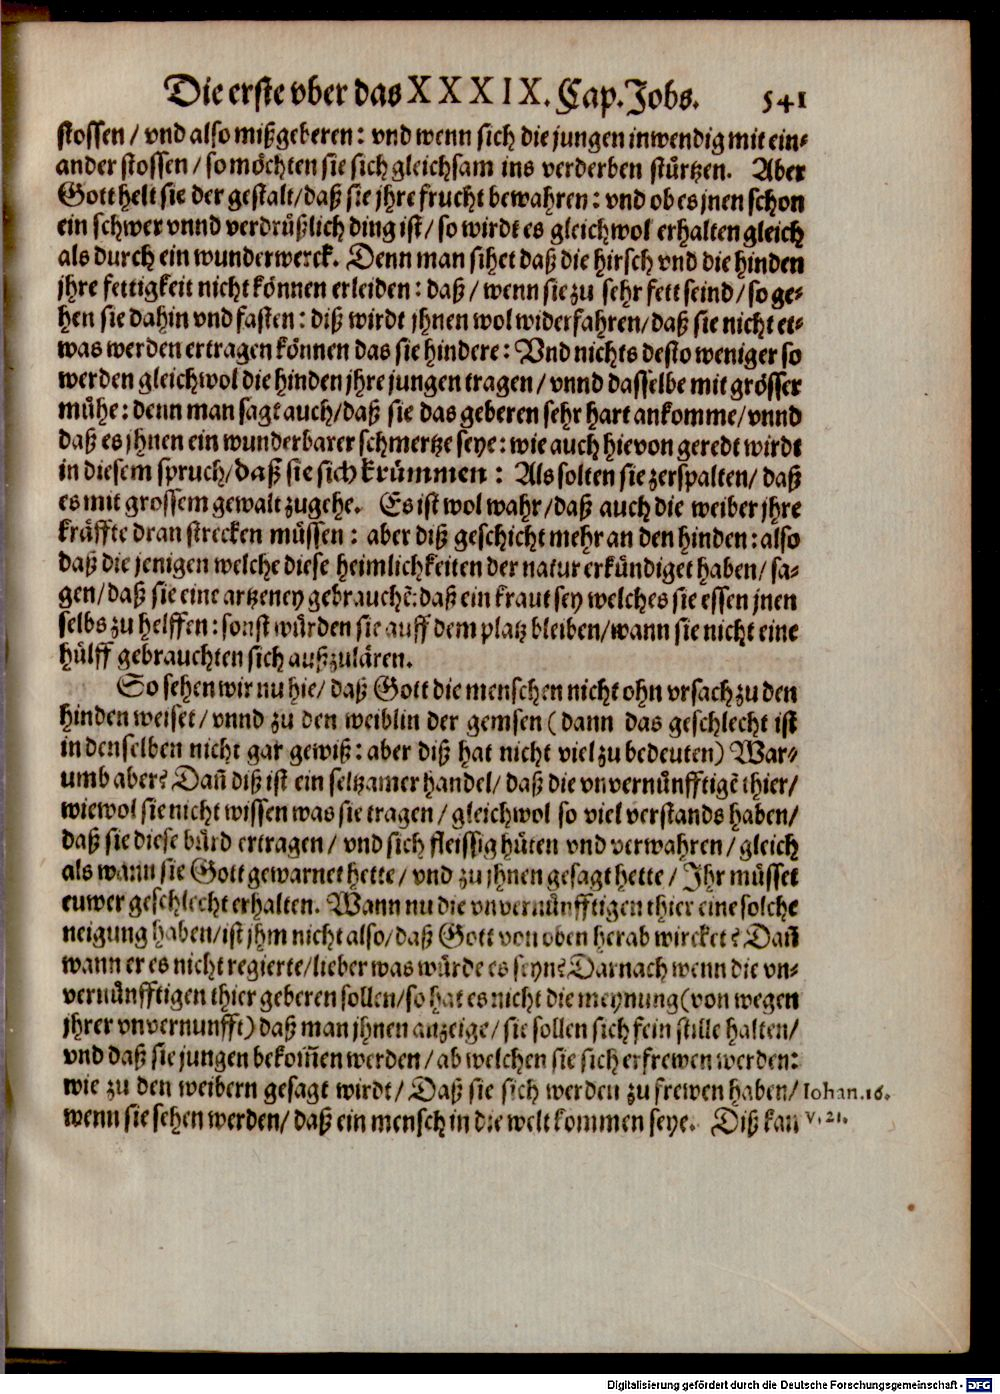 Die erste vber das XXXIX. Cap. Jobs. 541
stossen / vnd also mißgeberen: vnd wenn sich die jungen inwendig mit ein-
ander stossen / so möchten sie sich gleichsam ins verderben stürtzen. Aber
Gott helt sie der gestalt / daß sie jhre frucht bewahren: vnd ob es jnen schon
ein schwer vnnd verdrüßlich ding ist / so wirdt es gleichwol erhalten gleich
als durch ein wunderwerck. Denn man sihet daß die hirsch vnd die hinden
jhre fettigkeit nicht können erleiden: daß / wenn sie zu sehr fett seind / so ge-
hen sie dahin vnd fasten: diß wirdt jhnen wol widerfahren / daß sie nicht et-
was werden ertragen können das sie hindere: Vnd nichts desto weniger so
werden gleichwol die hinden jhre jungen tragen / vnnd dasselbe mit grösser
mühe: denn man sagt auch / daß sie das geberen sehr hart ankomme / vnnd
daß es jhnen ein wunderbarer schmertze seye: wie auch hievon geredt wirdt
in diesem spruch / daß sie sich krümmen: Als solten sie zerspalten / daß
es mit grossem gewalt zugehe. Es ist wol wahr / daß auch die weiber jhre
kräffte dran strecken müssen: aber diß geschicht mehr an den hinden: also
daß die jenigen welche diese heimlichkeiten der natur erkündiget haben / sa-
gen / daß sie eine artzeney gebrauchē: daß ein kraut sey welches sie essen jnen
selbs zu helffen: sonst würden sie auff dem platz bleiben / wann sie nicht eine
hülff gebrauchten sich außzulären.
So sehen wir nu hie / daß Gott die menschen nicht ohn vrsach zu den
hinden weiset / vnnd zu den weiblin der gemsen (dann das geschlecht ist
in denselben nicht gar gewiß: aber diß hat nicht viel zu bedeuten) War-
umb aber? Dañ diß ist ein seltzamer handel / daß die vnvernünfftigē thier /
wiewol sie nicht wissen was sie tragen / gleichwol so viel verstands haben /
daß sie diese bürd ertragen / vnd sich fleissig hüten vnd verwahren / gleich
als wann sie Gott gewarnet hette / vnd zu jhnen gesagt hette / Ihr müsset
euwer geschlecht erhalten. Wann nu die vnvernünfftigen thier eine solche
neigung haben / ist jhm nicht also / daß Gott von oben herab wircket? Dañ
wann er es nicht regierte / lieber was würde es seyn? Darnach wenn die vn-
vernünfftigen thier geberen sollen / so hat es nicht die meynung (von wegen
jhrer vnvernunfft) daß man jhnen anzeige / sie sollen sich fein stille halten /
vnd daß sie jungen bekom̃en werden / ab welchen sie sich erfrewen werden:
wie zu den weibern gesagt wirdt / Daß sie sich werden zu frewen haben / Iohan.16.
wenn sie sehen werden / daß ein mensch in die welt kommen seye. Diß kan v. 21.
Digitalisierung gefördert durch die Deutsche Forschungsgemeinschaft - DFG